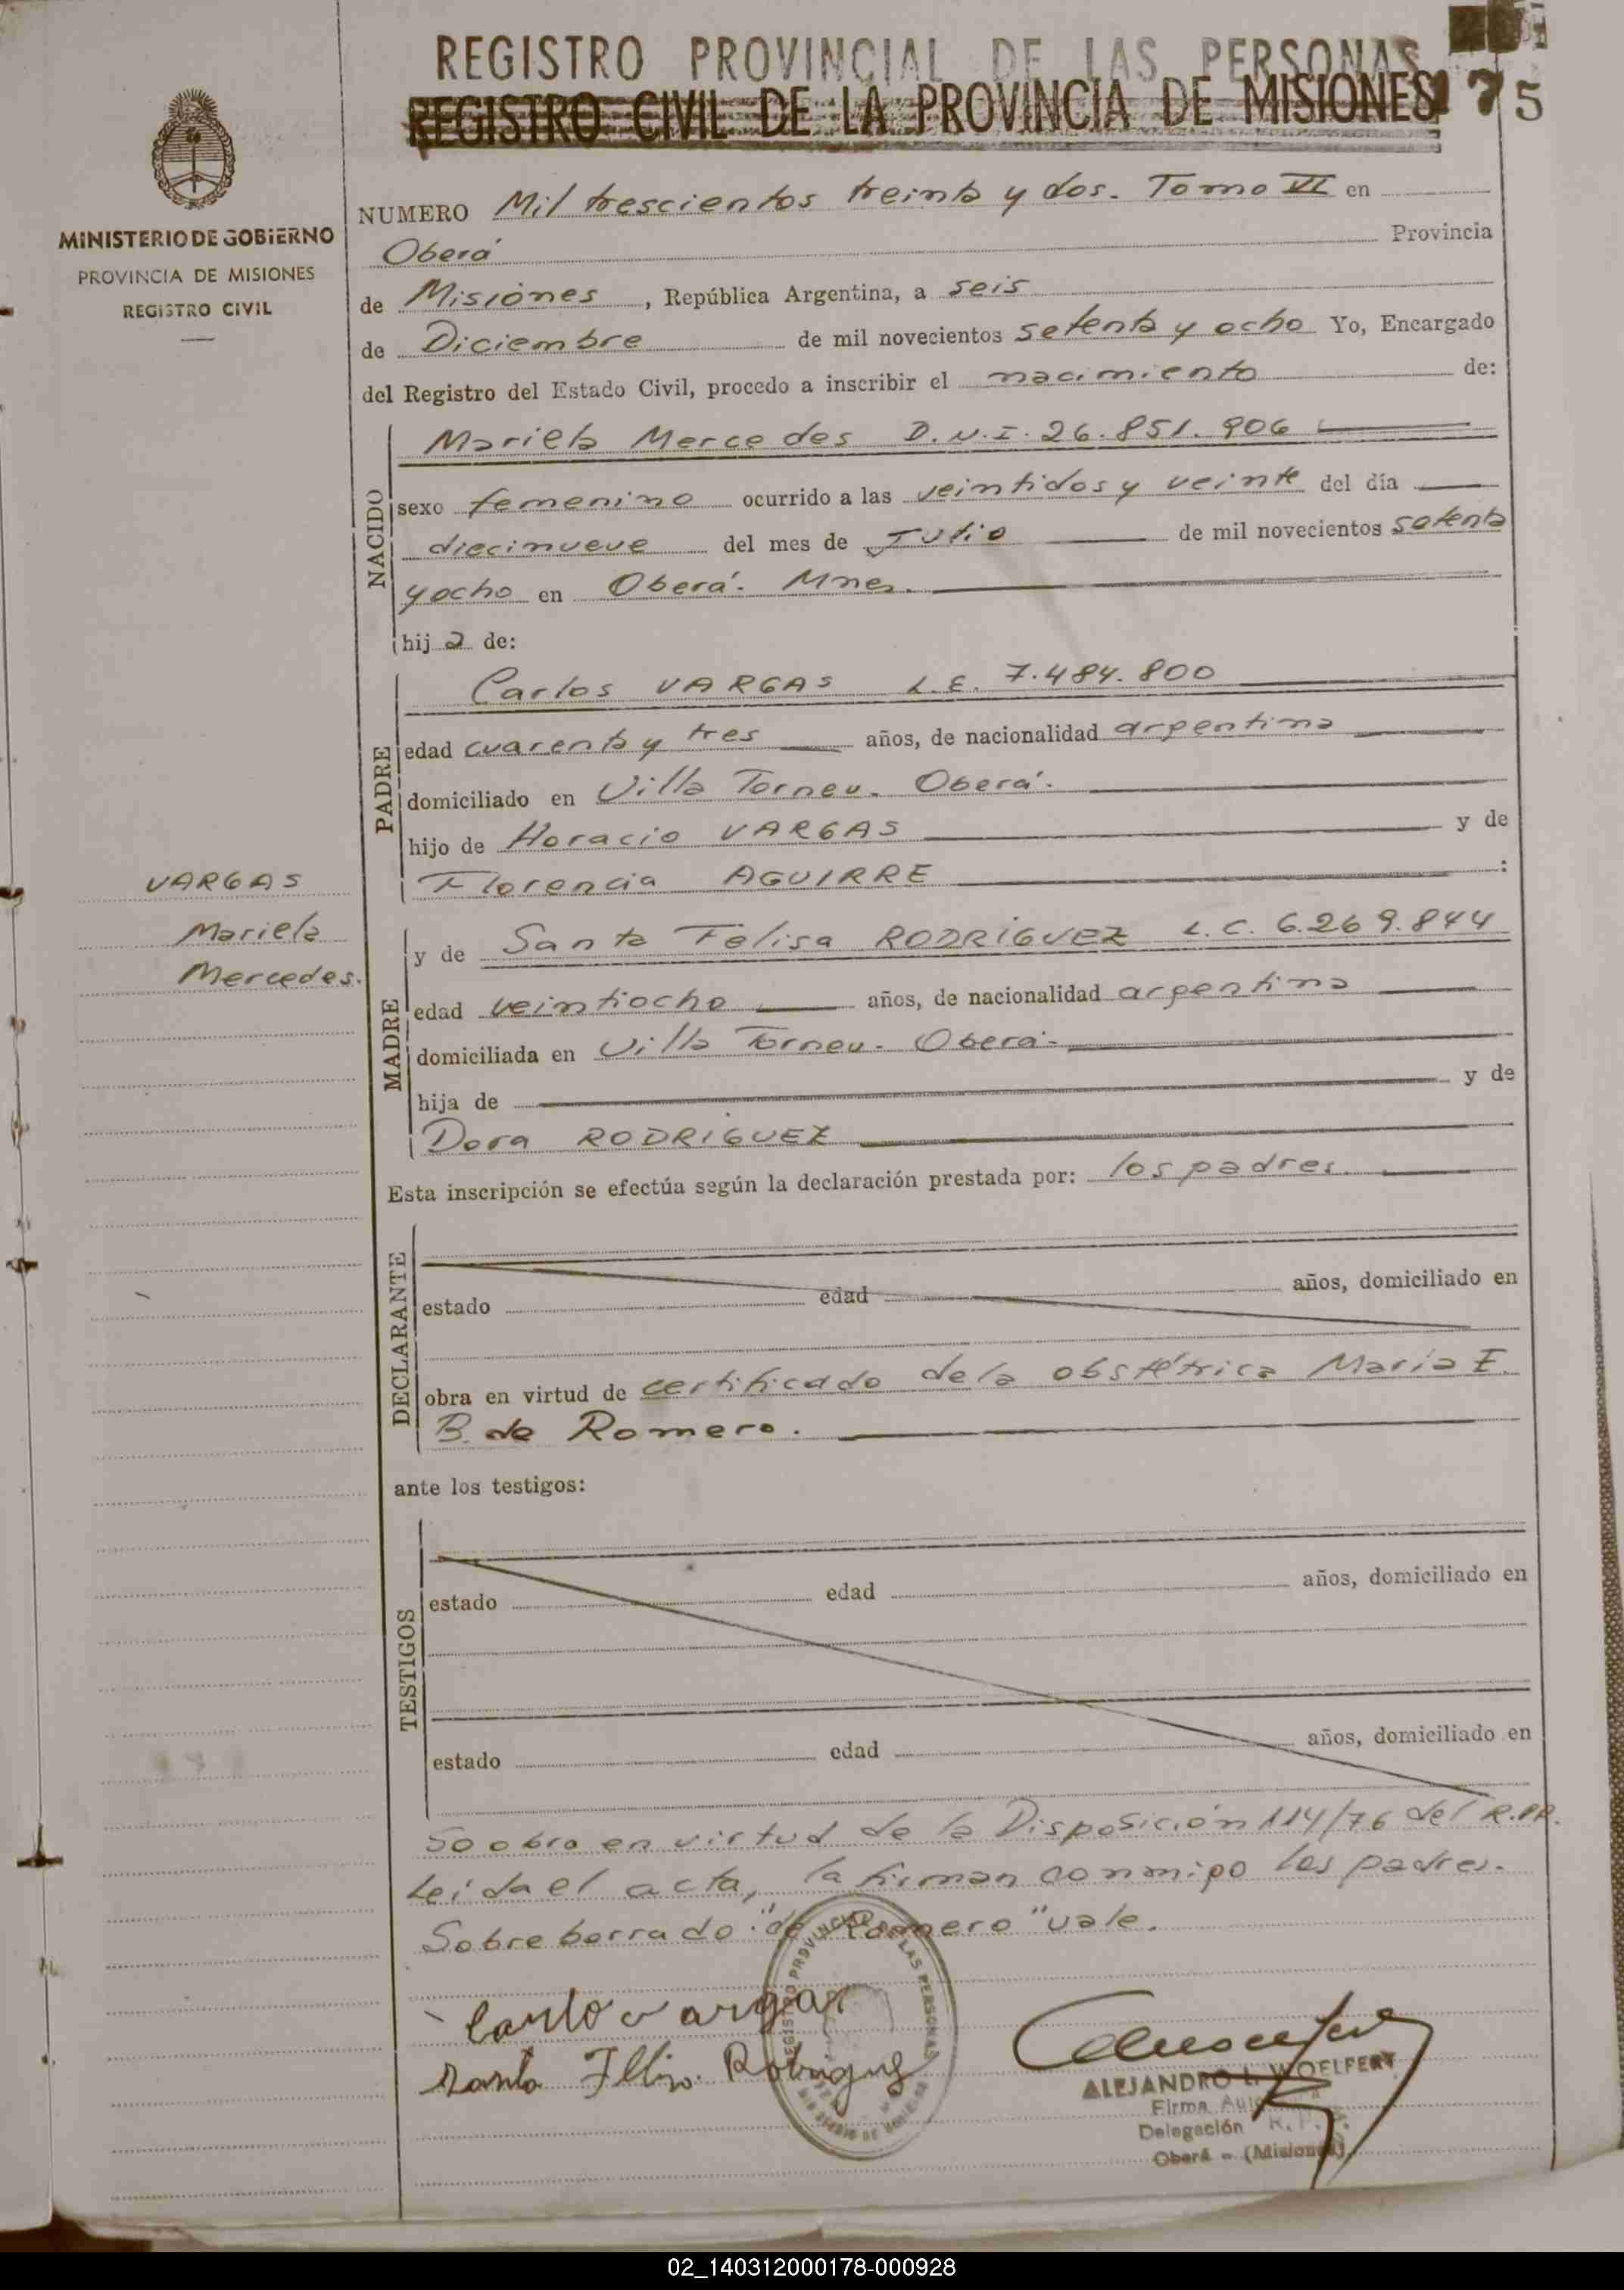 REGISTRO PROVINCIAL DE LAS PERSONAS
REGISTRO CIVIL DE LA PROVINCIA DE MISIONES
75
MINISTERIO DE GOBIERNO
PROVINCIA DE MISIONES
REGISTRO CIVIL
NUMERO Mil trescientos treinta y dos. Tomo VI en
Oberá Provincia
de Misiones, República Argentina, a seis
de Diciembre de mil novecientos setenta y ocho Yo, Encargado
del Registro del Estado Civil, procedo a inscribir el nacimiento de:
NACIDO
Mariela Mercedes D.N.I. 26.851.906
sexo femenino ocurrido a las veintidos y veinte del día
diecinueve del mes de Julio de mil novecientos setenta
y ocho en Oberá. Mnes.
hij a de:
PADRE
Carlos VARGAS L.E. 7.484.800
edad cuarenta y tres años, de nacionalidad argentina
domiciliado en Villa Torneu. Oberá.
hijo de Horacio VARGAS y de
Florencia AGUIRRE :
VARGAS
Mariela
Mercedes.
MADRE
y de Santa Felisa RODRÍGUEZ L.C. 6.269.844
edad veintiocho años, de nacionalidad argentina
domiciliada en Villa Torneu. Oberá.
hija de y de
Dora RODRÍGUEZ
Esta inscripción se efectúa según la declaración prestada por: los padres.
DECLARANTE
estado edad años, domiciliado en
obra en virtud de certificado de la obstétrica María E.
B. de Romero.
ante los testigos:
TESTIGOS
estado edad años, domiciliado en
estado edad años, domiciliado en
So obra en virtud de la Disposición 114/76 del R.P.P.
Leída el acta, la firman conmigo los padres.
Sobre borrado: "de Romero" vale.
Carlo Vargas
Santa
ALEJANDRO L. WOELFERT
Firma
Delegación R. P.
Oberá - (Misiones)
REGISTRO PROVINCIAL DE LAS PERSONAS
02_140312000178-000928